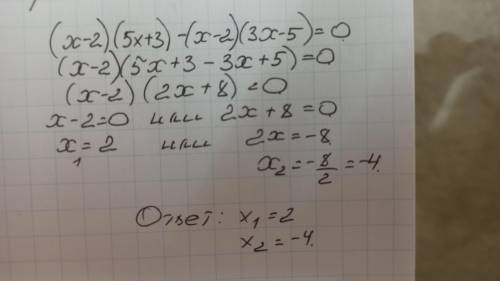 (x-2)(5x+3)-(x-2)(3x-5)=0
(x-2)(5x+3-3x+5)=0
(x-2)(2x+8)=0
x-2=0 или 2x+8=0
x₁=2 или 2x=-8
x₂=-8/2=-4.
Ответ: x₁=2
x₂=-4.